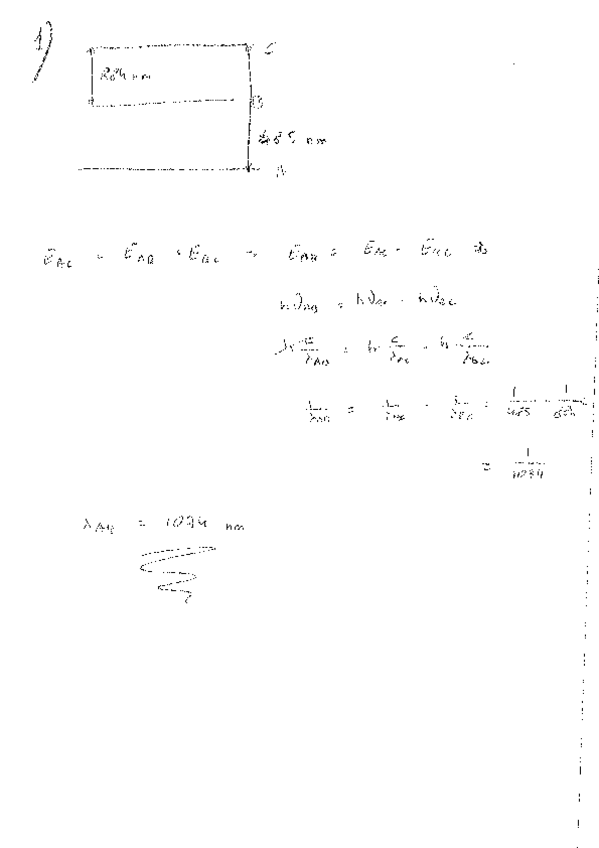 1)
C
884 nm
B
485 nm
A
E_AC = E_AB + E_BC ⇒ E_AB = E_AC - E_BC ⇒
hν_AB = hν_AC - hν_BC
h c/λ_AB = h c/λ_AC - h c/λ_BC
1/λ_AB = 1/λ_AC - 1/λ_BC = 1/485 - 1/884
= 1/1074
λ_AB = 1074 nm